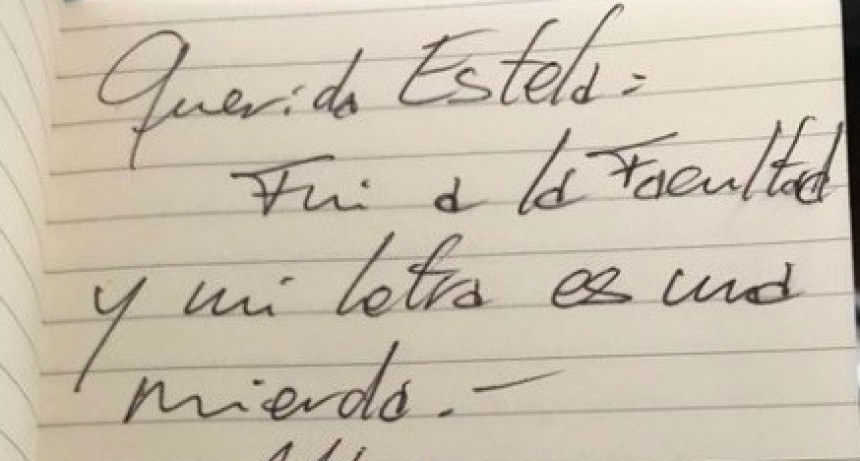 Querida Estela:
Fui a la Facultad
y mi letra es una
mierda.-